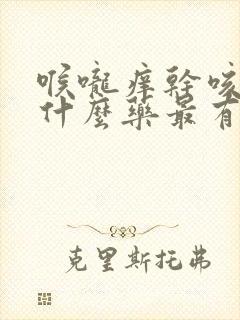 喉嚨痒幹咳
什麼藥最有
克里斯托弗